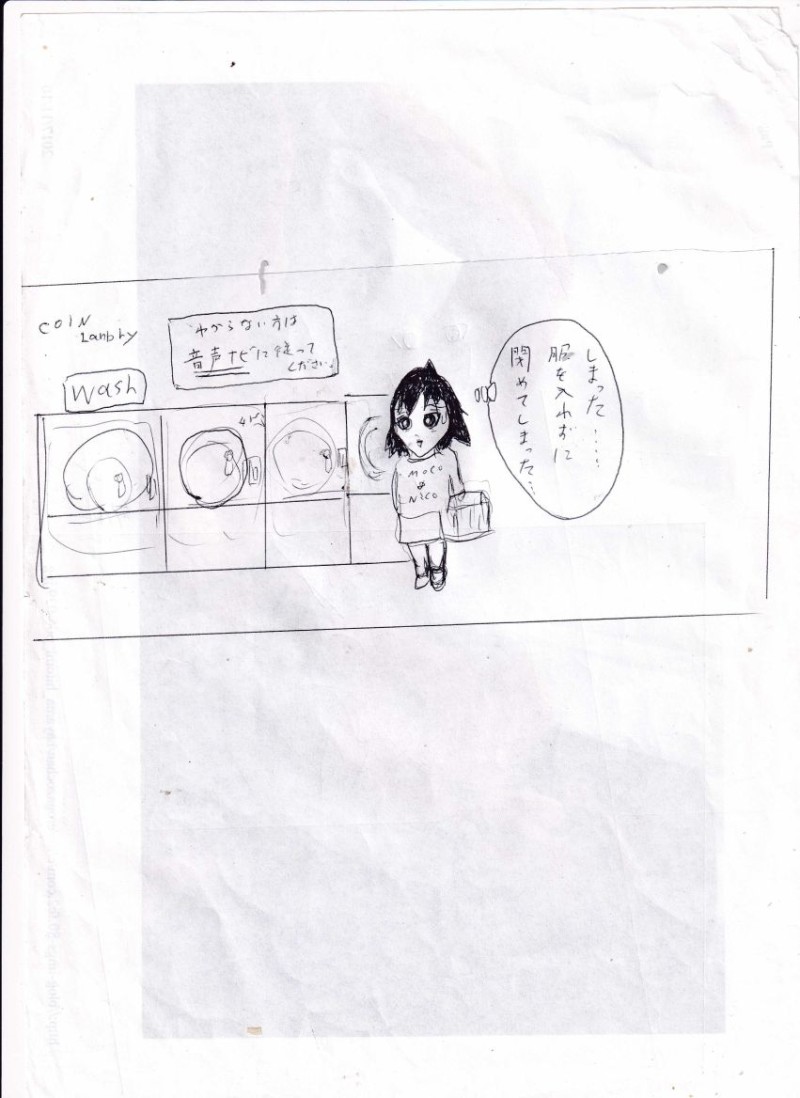 COIN
Lanbry
わからない方は
音声ナビに従って
ください。
Wash
MOCO
NICO
しまった……
服を入れずに
閉めてしまった…